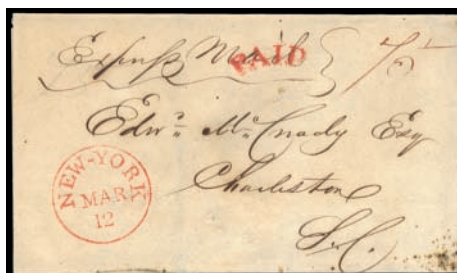 Express Mail PAID 75
Edwd McCrady Esq
Charleston
S.C.
NEW-YORK
MAR
12